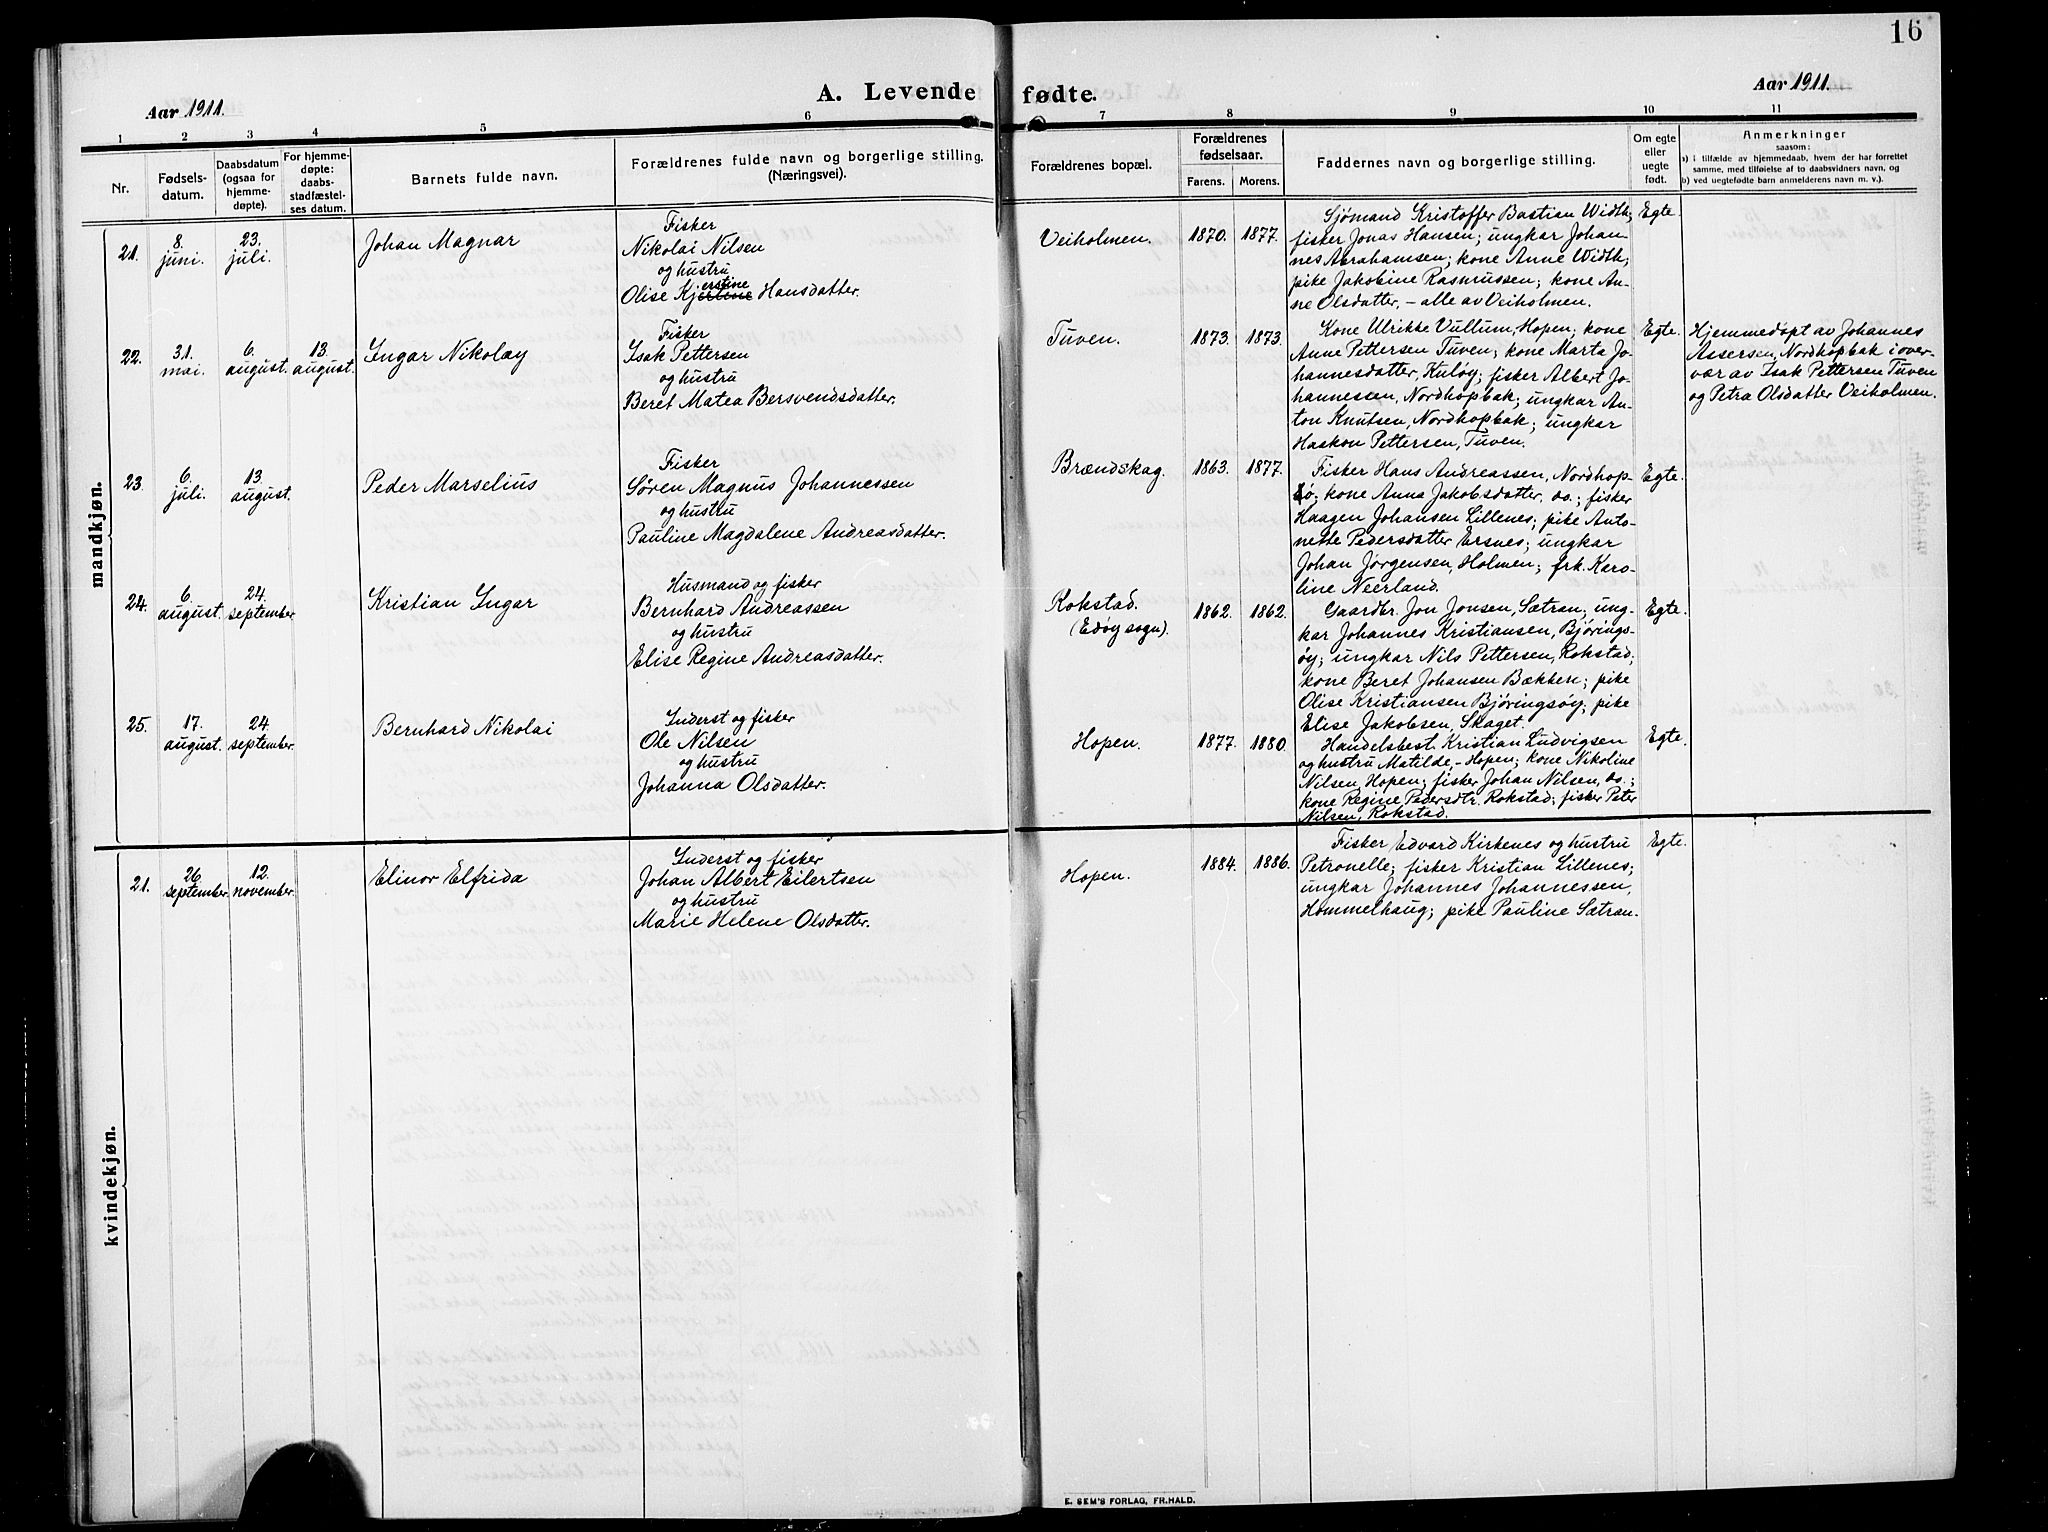 16
A. Levende fødte.
Aar 1911.
Aar 1911.
1 2 3 4 5 6 7 8 9 10 11
Nr.
Fødsels-
datum.
Daabsdatum
(ogsaa for
hjemme-
døpte).
For hjemme-
døpte:
daabs-
stadfæstel-
ses datum.
Barnets fulde navn.
Forældrenes fulde navn og borgerlige stilling.
(Næringsvei).
Forældrenes bopæl.
Forældrenes
fødselsaar.
Farens. Morens.
Faddernes navn og borgerlige stilling.
Om egte
eller
uegte
født.
Anmerkninger
saasom:
a) i tilfælde av hjemmedaab, hvem der har forrettet
samme, med tilføielse af to daabsvidners navn, og
b) ved uegtefødte barn anmelderens navn m. v.).
mandkjøn.
21.
8.
juni.
23.
juli.
Johan Magnar
Fisker
Nikolai Nilsen
og hustru
erstine
Olise Kjertene Hansdatter.
Veiholmen.
1870. 1877.
Sjømand Kristoffer Bastian Width;
fisker Jonas Hansen; ungkar Johan-
nes Abrahamsen; kone Anne Width;
pike Jakobine Rasmussen; kone An-
ne Olsdatter, – alle av Veiholmen.
Egte.
22.
31.
mai.
6.
august.
13.
august.
Ingar Nikolay
Fisker
Isak Pettersen
og hustru
Beret Matea Bersvendsdatter.
Tuven.
1873. 1873.
Kone Ulrikke Vullum, Hopen; kone
Anne Pettersen Tuven; kone Marta Jo-
hannesdatter, Kuløy; fisker Albert Jo-
hannessen, Nordhopbak; ungkar An-
ton Knutsen, Nordhopbak; ungkar
Haakon Pettersen, Tuven.
Egte.
Hjemmedøpt av Johannes
Assersen, Nordhopbak i over-
vær av Isak Pettersen Tuven
og Petra Olsdatter Veiholmen.
23.
6.
juli.
13.
august.
Peder Marselius
Fisker
Søren Magnus Johannessen
og hustru
Pauline Magdalene Andreasdatter.
Brændskag.
1863. 1877.
Fisker Hans Andreassen, Nordhop-
ø; kone Anna Jakobsdatter, do.; fisker
Haagen Johansen Lillenes; pike Anto-
nette Pedersdatter Ersnes; ungkar
Johan Jørgensen, Holmen; frk. Karo-
line Neerland.
Egte.
24.
6.
august.
24.
september.
Kristian Ingar
Husmand og fisker
Bernhard Andreassen
og hustru
Elise Regine Andreasdatter.
Rokstad.
(Edøy sogn).
1862. 1862.
Gaardbr. Jon Jonsen, Sætran; ung-
kar Johannes Kristiansen, Bjørings-
øy; ungkar Nils Pettersen, Rokstad;
kone Beret Johansen Bækken; pike
Olise Kristiansen Bjøringsøy; pike
Elise Jakobsen, Skaget.
Egte.
25.
17.
august.
24.
september.
Bernhard Nikolai
Inderst og fisker
Ole Nilsen
og hustru
Johanna Olsdatter.
Hopen.
1877. 1880.
Handelsbest. Kristian Ludvigsen
og hustru Matilde, – Hopen; kone Nikoline
Nilsen, Hopen; fisker Johan Nilsen, do.;
kone Regine Pedersdtr. Rokstad; fisker Peter
Nilsen, Rokstad.
Egte.
kvindekjøn.
21.
26.
september.
12.
november.
Elinor Elfrida
Inderst og fisker
Johan Albert Eilertsen
og hustru
Marie Helene Olsdatter.
Hopen.
1884. 1886.
Fisker Edvard Kirkenes og hustru
Petronelle; fisker Kristian Lillenes;
ungkar Johannes Johannessen,
Hommelhaug; pike Pauline Sætran.
Egte.
E. SEM'S FORLAG, FR.HALD.